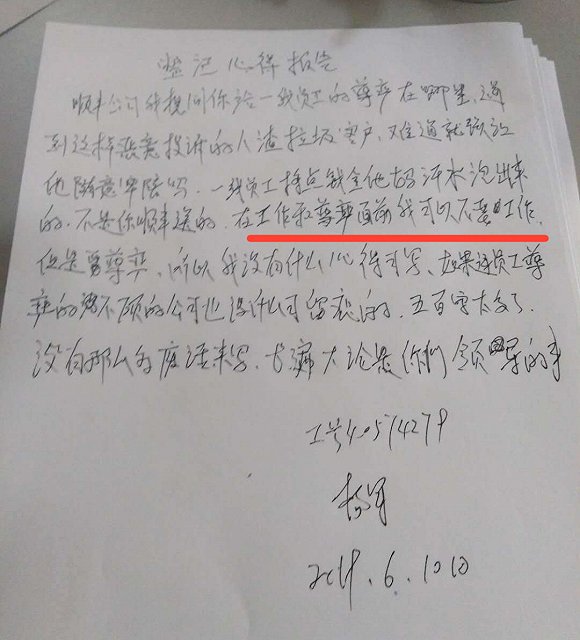 登记心得报告
顺丰公司我想问你给一线员工的尊严在哪里,遇
到这样恶意投诉的人渣垃圾客户,难道就须让
他随意索赔吗.一线员工挣点钱全他妈汗水泡出来
的.不是你顺丰送的.在工作和尊严面前我可以不要工作.
但是要尊严,所以我没有什么心得可写、如果连员工尊
严的都不顾的公司也没什么可留恋的,五百字太多了.
没有那么多废话来写.长篇大论是你们领导的事
工号40574279
杨军
6.10